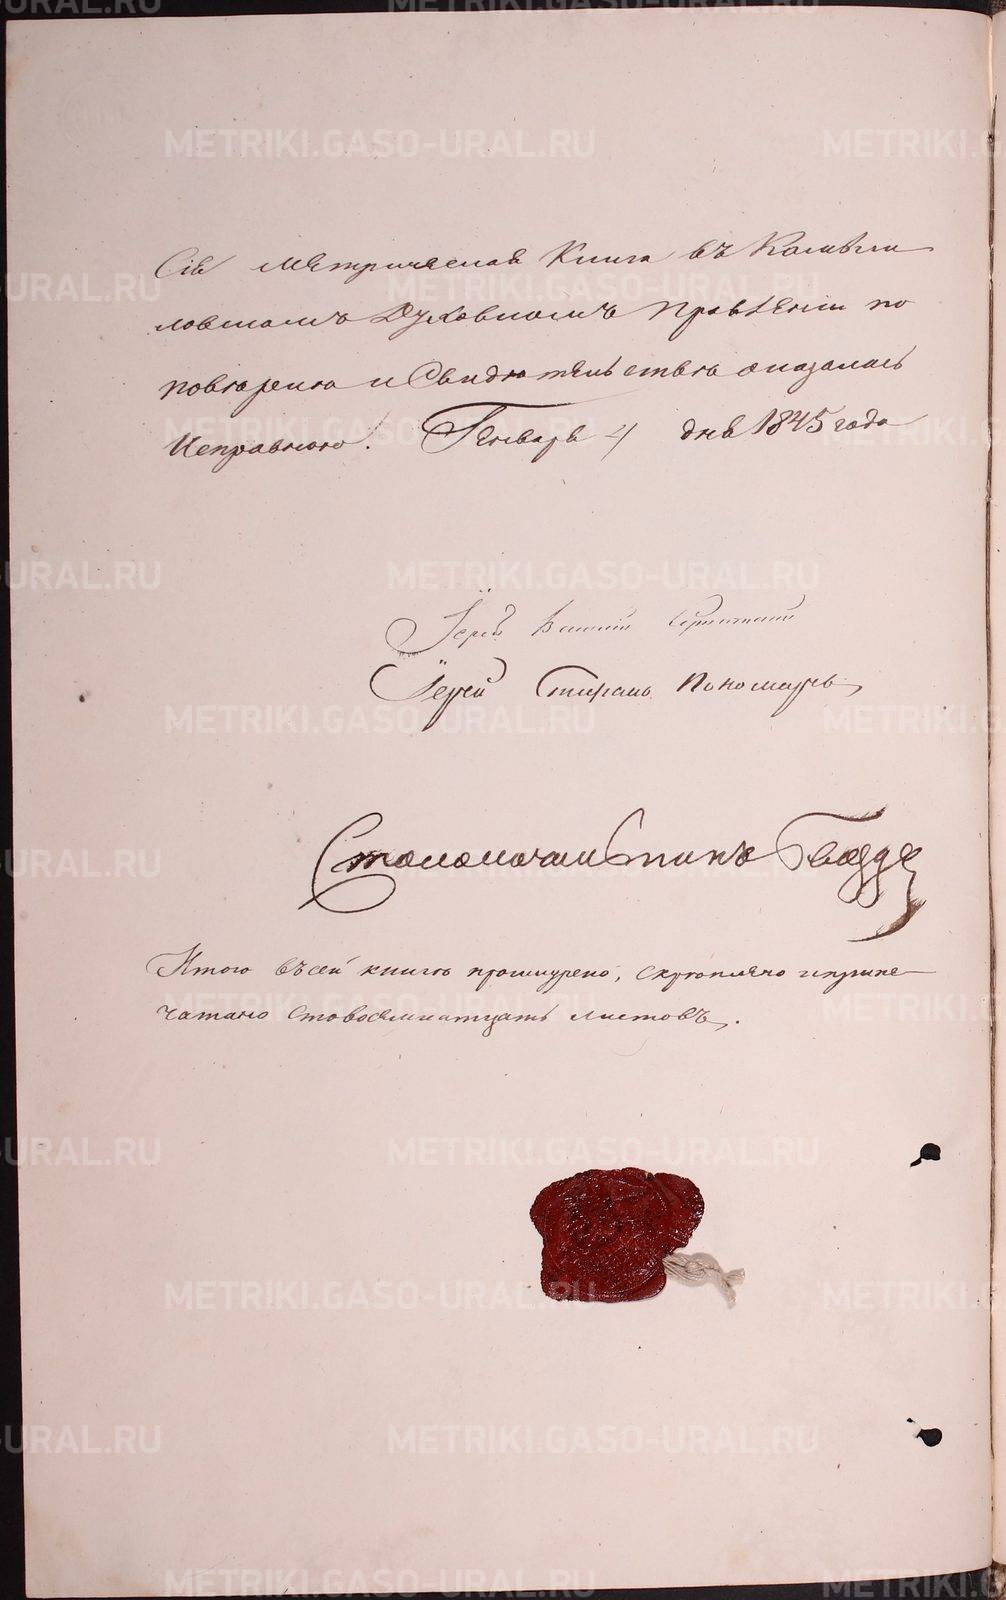 Сія Метрическая Книга въ Камышловскомъ
Духовномъ Правленіи по
повѣрки и Свидѣтельствѣ оказалась
Исправною. Генваря 4 дня 1845 года
Іерей
Іерей Стефанъ Пономаревъ
Столоначальникъ
Итого въ сей книгѣ прошнурено, скрѣплено и припе-
чатано стовосемнатцать листовъ.
METRIKI.GASO-URAL.RU